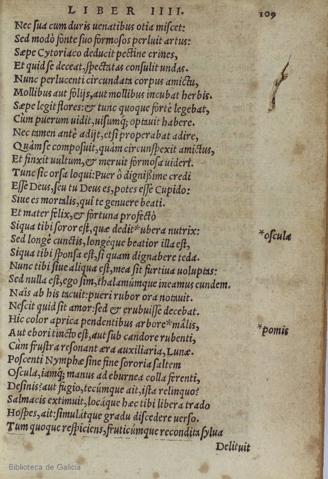 LIBER IIII. 109
Nec sua cum duris uenatibus otia miscet:
Sed modò fonte suo formosos perluit artus:
Sæpe Cytoriaco deducit pectine crines,
Et quid se deceat, spectatas consulit undas.
Nunc perlucenti circundata corpus amictu,
Mollibus aut folijs, aut mollibus incubat herbis.
Sæpe legit flores: & tunc quoque fortè legebat,
Cum puerum uidit, uisumq; optauit habere.
Nec tamen antè adijt, etsi properabat adire,
Quàm se composuit, quàm circunspexit amictus,
Et finxit uultum, & meruit formosa uideri.
Tunc sic orsa loqui: Puer ô dignissime credi
Esse Deus, seu tu Deus es, potes esse Cupido:
Siue es mortalis, qui te genuere beati.
Et mater felix, & fortuna profectò
Siqua tibi soror est, quæ dedit*ubera nutrix:
*oscula
Sed longè cunctis, longéque beatior illa est,
Siqua tibi sponsa est, si quam dignabere teda.
Nunc tibi siue aliqua est, mea sit furtiua uoluptas:
Sed nulla est, ego sim, thalamúmque ineamus eundem.
Nais ab his tacuit: pueri rubor ora notauit.
Nescit quid sit amor: sed & erubuisse decebat.
Hic color aprica pendentibus arbore*mâlis,
*pomis
Aut ebori tincto est, aut sub candore rubenti,
Cum frustra resonant æra auxiliaria, Lunæ.
Poscenti Nymphæ sine fine sororia saltem
Oscula, iamq; manus ad eburnea colla ferenti,
Desinis? aut fugio, tecúmque ait, ista relinquo?
Salmacis extimuit, locáque hæc tibi libera trado
Hospes, ait: simulátque gradu discedere uerso.
Tum quoque respiciens, fruticúmque recondita sylua
Delituit
Biblioteca de Galicia